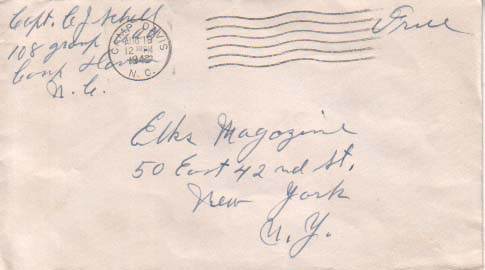 Capt. C. J. 
108 group
Camp Davis
N. C.
CAMP DAVIS
12 PM
1942
N. C.
Free
Elks Magazine
50 East 42nd St.
New York
N. Y.